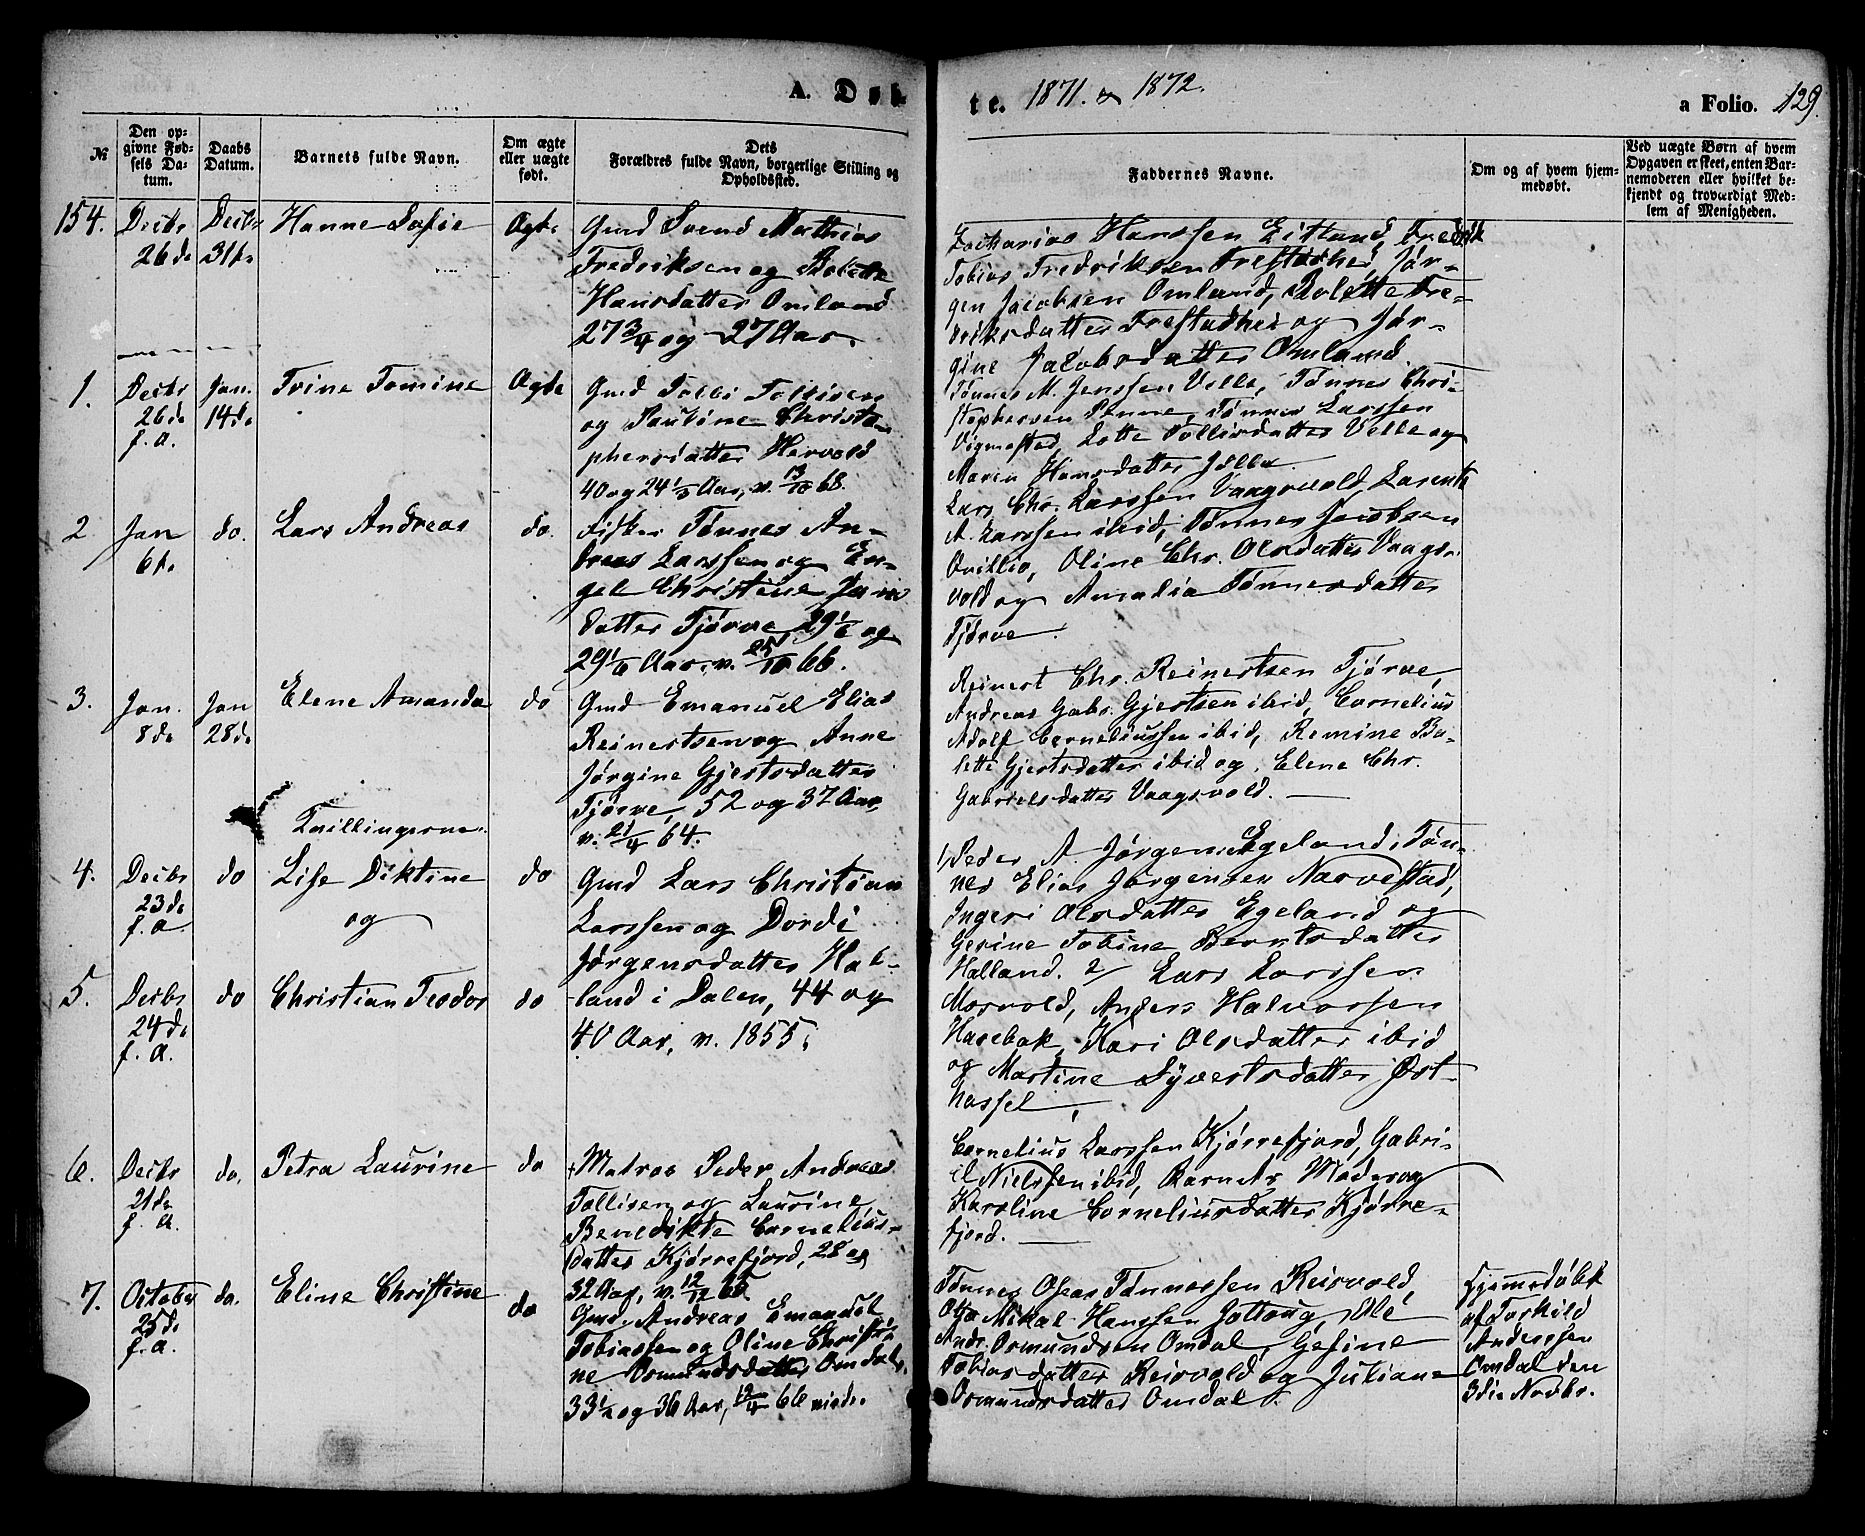 A. Døb-
te. 1871. & 1872.
a Folio. 129.
№
Den op-
givne Fød-
sels Da-
tum.
Daabs
Datum.
Barnets fulde Navn.
Om ægte
eller uægte
født.
Dets
Forældres fulde Navn, borgerlige Stilling og
Opholdssted.
Faddernes Navne.
Om og af hvem hjem-
medøbt.
Ved uægte Børn af hvem
Opgaven er skeet, enten Bar-
nemoderen eller hvilket be-
kjendt og troværdigt Med-
lem af Menigheden.
154.
Decbr
26de
Decbr
31te
Hanne Sofie
Ægte
Gmd Svend Mathias
Fredriksen og Bolette
Hansdatter Omland
27 3/4 og 27 Aar.
Zacharias Hanssen Eitland, Fredrik
Tobias Fredriksen Frestadhei, Jør-
gen Jacobsen Omland, Bolette Fre-
driksdatter Frestadhei og Jør-
gine Jacobsdatter Omland.
1.
Decbr
26de
f. a.
Jan.
14de
Trine Tomine
Ægte
Gmd Tolli Tollisen
og Pauline Christo-
phersdatter Hervold
40 og 24 Aar, v. 13/10 68.
Tønnes M. Jenssen Velle, Tønnes Chri-
stophersen Penne, Tønnes Larssen
Vigmosted, Lotte Tollisdatter Velle og
Maren Hansdatter Jølle.
2
Jan
6te
do.
Lars Andreas
do.
Fisker Tønnes An-
dreas Larssen og En-
gel Christine Jans
datter Tjørve, 29 1/2 og
29 Aar, v. 66.
Lars Chr. Larssen Vaagsvold, Laurents
A. Larssen ibid, Tønnes Jacobsen
Qvillio, Oline Chr. Olsdatter Vaags-
vold og Amalia Tønnesdatter
Tjørve.
3.
Jan.
8de
Jan
28de
Elene Amanda
do
Gmd Emanuel Elias
Reinertsen og Anne
Jørgine Gjertsdatter
Tjørve, 52 og 37 Aar,
v. 21/4 64.
Reinert Chr. Reinertsen Tjørve,
Andreas Gabr. Gjertsen ibid, Cornelius
Adolf Corneliussen ibid, Remine Bo-
lette Gjertsdatter ibid og Elene Chr.
Gabrielsdatter Vaagsvold.
Tvillingerne
4.
Decbr
23de
f. a
do
Lise Diktine
og
do
Gmd Lars Christian
Larssen og Dordi
Jørgensdatter Hal-
1/ Peder A. Jørgensen Egeland, Tøn-
nes Elias Jørgensen Narvestad,
Ingeri Olsdatter Egeland og
Gesine Tobine Berntsdatter
Halland. 2/ Lars Larssen
5.
Decbr
24de
f. a.
do
Christian Teodor
do
land i Dalen, 44 og
40 Aar, v. 1855.
Mosvold, Anders Halvorssen
Hasebak, Kari Olsdatter ibid
og Martine Syvertsdatter Øst-
hassel.
6.
Decbr
21de
f. a.
do.
Petra Laurine
do
Matros Peder Andreas
Tollisen og Laurine
Benedikte Cornelius-
datter Kjørrefjord, 28 og
32 Aar, v. 12/12 65.
Cornelius Larssen Kjørrefjord, Gabri-
el Nielssen ibid, Barnets Moder og
Karoline Corneliusdatter Kjørre-
fjord.
7.
October
25de
f. a.
do.
Eline Christine
do
Gmd. Andreas Emanuel
Tobiassen og Oline Christi-
ne Osmundsdatter Omdal,
33 1/2 og 36 Aar, 12/4 66 viede.
Tønnes Oseas Tønnessen Reisvold,
Otto Mikal Hanssen Jøllaug, Ole
Andr. Osmundsen Omdal, Gesine
Tobiasdatter Reisvold og Juliane
Osmundsdatter Omdal.
Hjemmedøbt
af Torkild
Anderssen
Omdal den
3die Novbr.